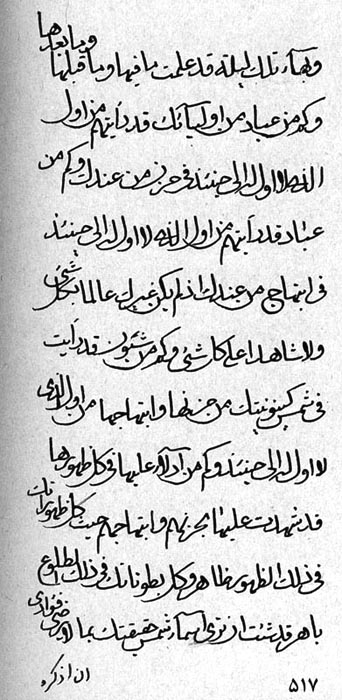 وبهآء تلك ليلة قد علمت ما فيها وما قبلها وما بعدها
وكم من عباد من اوليآئك قد رأيتهم من اول
الذى لا اول له الى حينئذ فى حزن من عندك وكم من
عباد قد رأيتهم من اول الذى لا اول له الى حينئذ
فى ابتهاج من عندك اذ لم يكن غيرك عالما بكل شئ
ولا شاهدا على كل شئ وكم من شئون قد رأيت
فى شمس كينونيتك من حزنها وابتهاجها من اول الذى
لا اول له الى حينئذ وكم من ادلآء عليها فى كل ظهورها
قد شهدت عليها بحزنهم وابتهاجهم حيث كل ظهوراتك
فى ذلك الظهور ظاهر وكل بطوناتك فى ذلك الطلوع
باهر قد شئت ان ترى اسمآء شمس حقيقتك بما لا ... فؤادى
ان اذكره
٥١٧